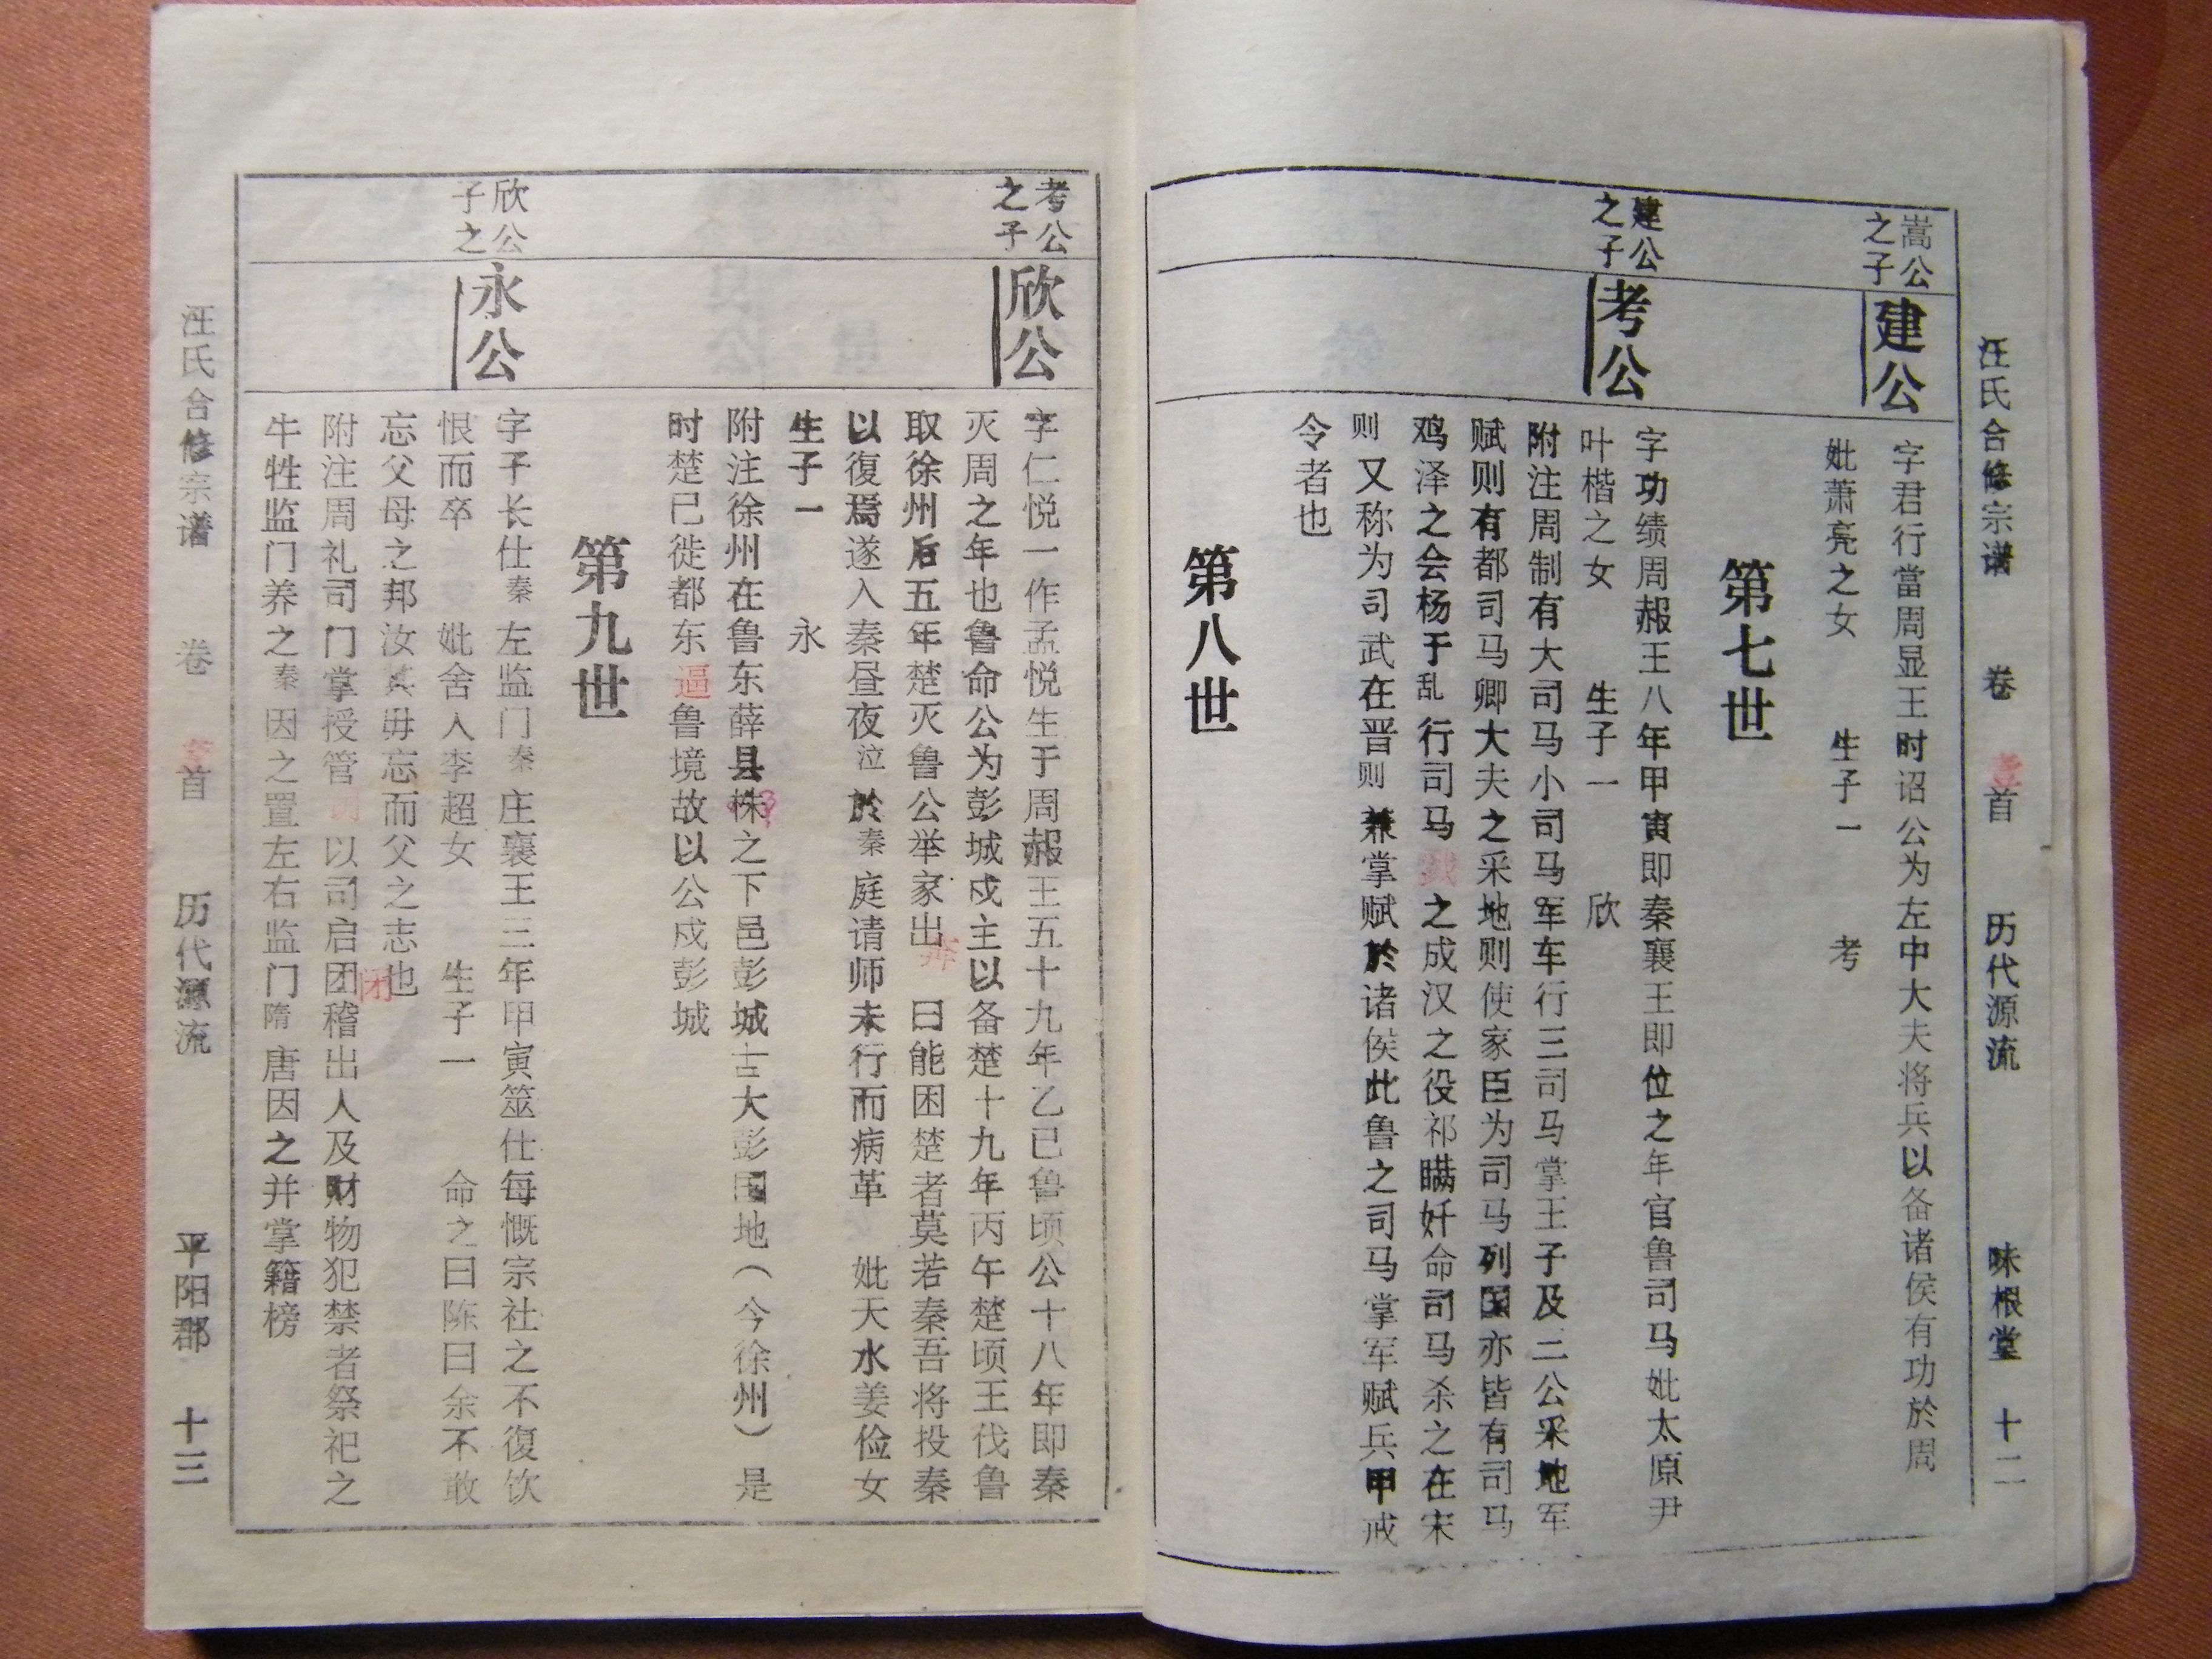 汪氏合修宗谱 卷首 历代源流 味根堂 十二
嵩公
之子
建公
字君行當周显王时诏公为左中大夫将兵以备诸侯有功於周
妣萧亮之女 生子一 考
第七世
建公
之子
考公
字功绩周赧王八年甲寅即秦襄王即位之年官鲁司马妣太原尹
叶楷之女 生子一 欣
附注周制有大司马小司马军车行三司马掌王子及二公采地军
赋则有都司马卿大夫之采地则使家臣为司马列国亦皆有司马
鸡泽之会杨于乱行司马 之成汉之役祁瞒奸命司马杀之在宋
则又称为司武在晋则兼掌赋於诸侯此鲁之司马掌军赋兵甲戒
令者也
第八世
考公
之子
欣公
字仁悦一作孟悦生于周赧王五十九年乙已鲁顷公十八年即秦
灭周之年也鲁命公为彭城戍主以备楚十九年丙午楚顷王伐鲁
取徐州后五年楚灭鲁公举家出奔曰能困楚者莫若秦吾将投秦
以復焉遂入秦昼夜泣於秦庭请师未行而病革 妣天水姜俭女
生子一 永
附注徐州在鲁东薛县株之下邑彭城古大彭国地(今徐州)是
时楚已徙都东逼鲁境故以公戍彭城
第九世
欣公
子之
永公
字子长仕秦左监门秦庄襄王三年甲寅筮仕每慨宗社之不復饮
恨而卒 妣舍人李超女 生子一 命之曰陈曰余不敢
忘父母之邦汝其毋忘而父之志也
附注周礼司门掌授管 以司启团闭稽出人及财物犯禁者祭祀之
牛牲监门养之秦因之置左右监门隋唐因之并掌籍榜
汪氏合修宗谱 卷首 历代源流 平阳郡 十三